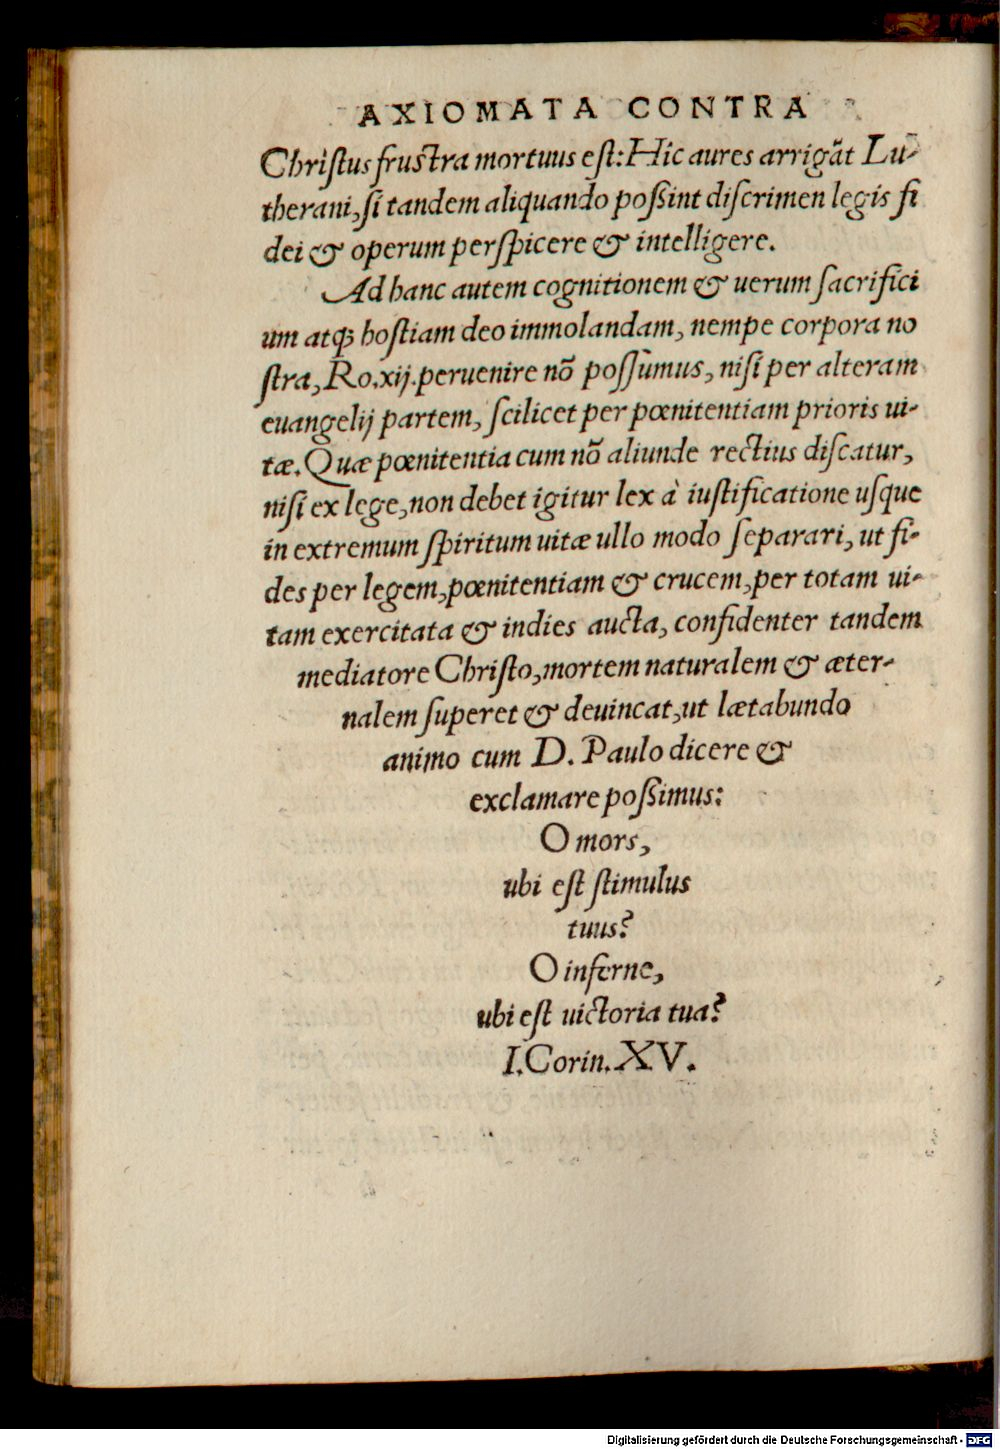 AXIOMATA CONTRA
Christus frustra mortuus est: Hic aures arrigãt Lu-
therani, si tandem aliquando poßint discrimen legis fi
dei & operum perspicere & intelligere.
Ad hanc autem cognitionem & uerum sacrifici
um atq; hostiam deo immolandam, nempe corpora no
stra, Ro.xij.peruenire nõ possumus, nisi per alteram
euangelij partem, scilicet per pœnitentiam prioris ui-
tæ. Quæ pœnitentia cum nõ aliunde rectius discatur,
nisi ex lege, non debet igitur lex à iustificatione usque
in extremum spiritum uitæ ullo modo separari, ut fi-
des per legem, pœnitentiam & crucem, per totam ui-
tam exercitata & indies aucta, confidenter tandem
mediatore Christo, mortem naturalem & æter-
nalem superet & deuincat, ut lætabundo
animo cum D. Paulo dicere &
exclamare poßimus:
O mors,
ubi est stimulus
tuus?
O inferne,
ubi est uictoria tua?
I.Corin.XV.
Digitalisierung gefördert durch die Deutsche Forschungsgemeinschaft - DFG